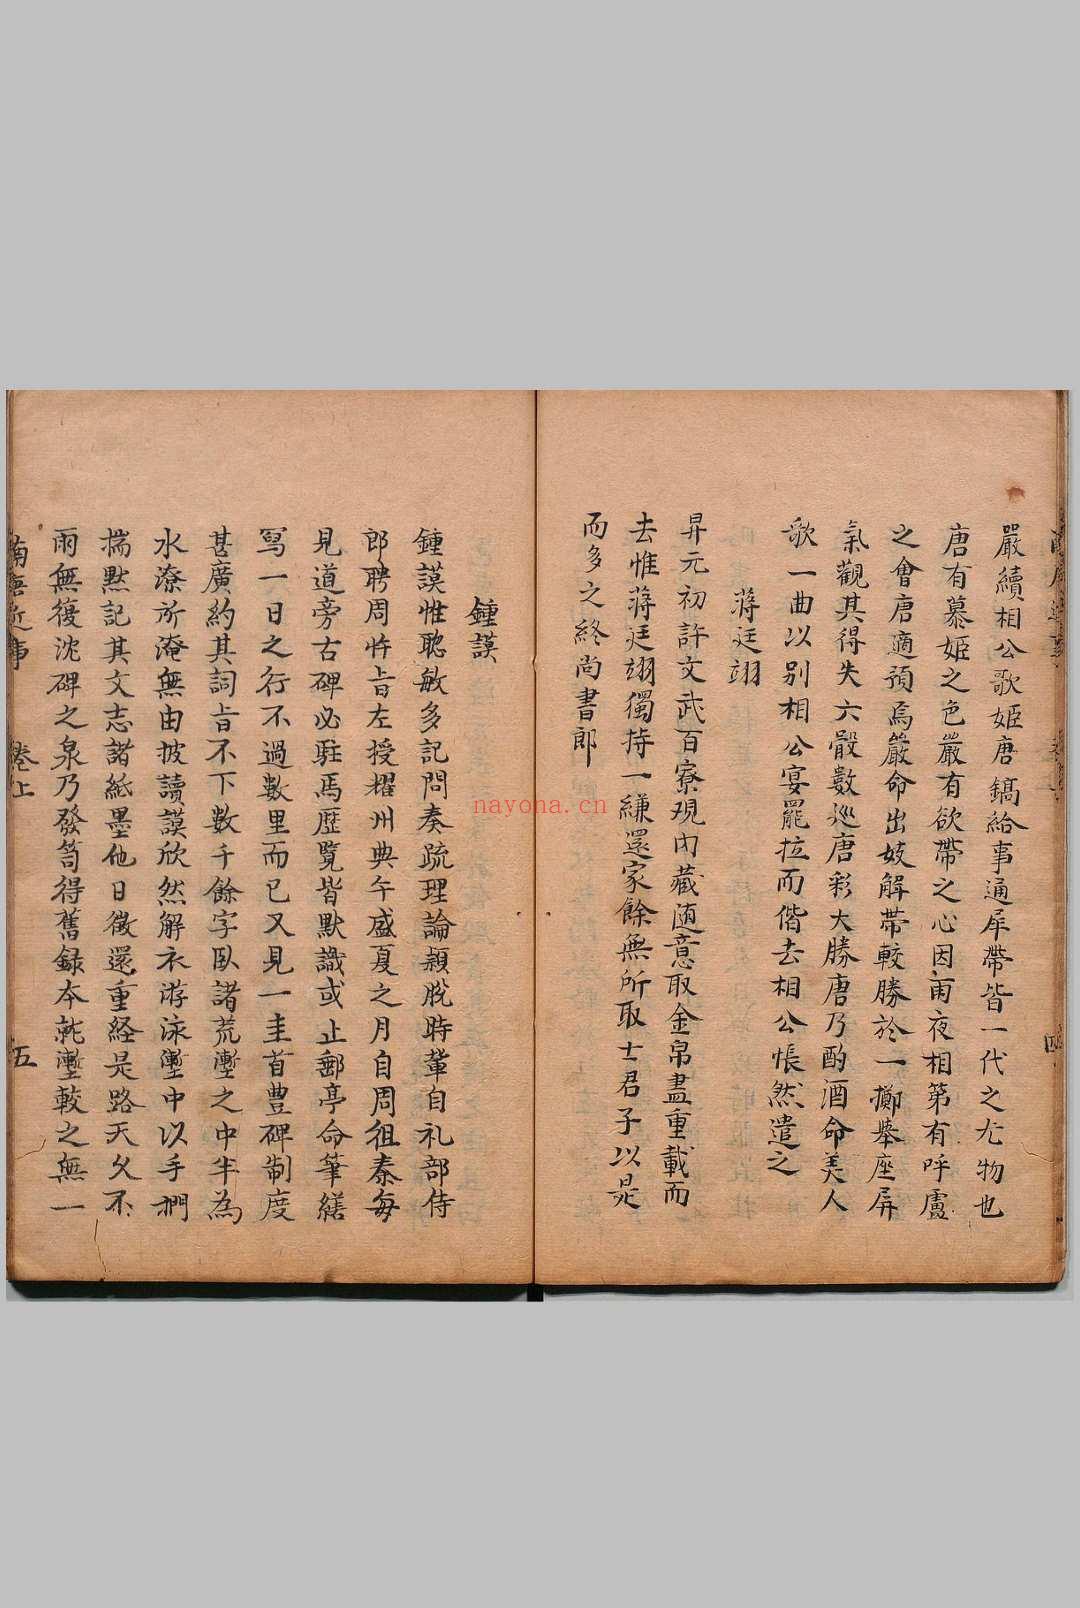 嚴續相公歌姬唐鎬給事通犀帶皆一代之尤物也
唐有慕姬之色嚴有欲帶之心因雨夜相第有呼盧
之會唐適預焉嚴命出妓解帶較勝於一擲舉座屏
氣觀其得失六骰數巡唐彩大勝唐乃酌酒命美人
歌一曲以别相公宴罷拉而偕去相公悵然遣之
蔣廷翊
昇元初許文武百寮現内藏随意取金帛盡重載而
去惟蔣廷翊獨持一縑還家餘無所取士君子以是
而多之終尚書郎
鍾謨
鍾謨性聰敏多記問奏疏理論穎脫時輩自礼部侍
郎聘周忤旨左授耀州典午盛夏之月自周徂秦每
見道旁古碑必駐馬歷覽皆默識或止郵亭命筆繕
寫一日之行不過數里而已又見一圭首豊碑制度
甚廣約其詞旨不下數千餘字臥諸荒壍之中半為
水潦所淹無由披讀謨欣然解衣游泳壍中以手捫
揣默記其文志諸紙墨他日徵還重経是路天久不
雨無復沈碑之泉乃發笥得舊録夲就壍較之無一
南唐近事 卷上 五
nayona.cn